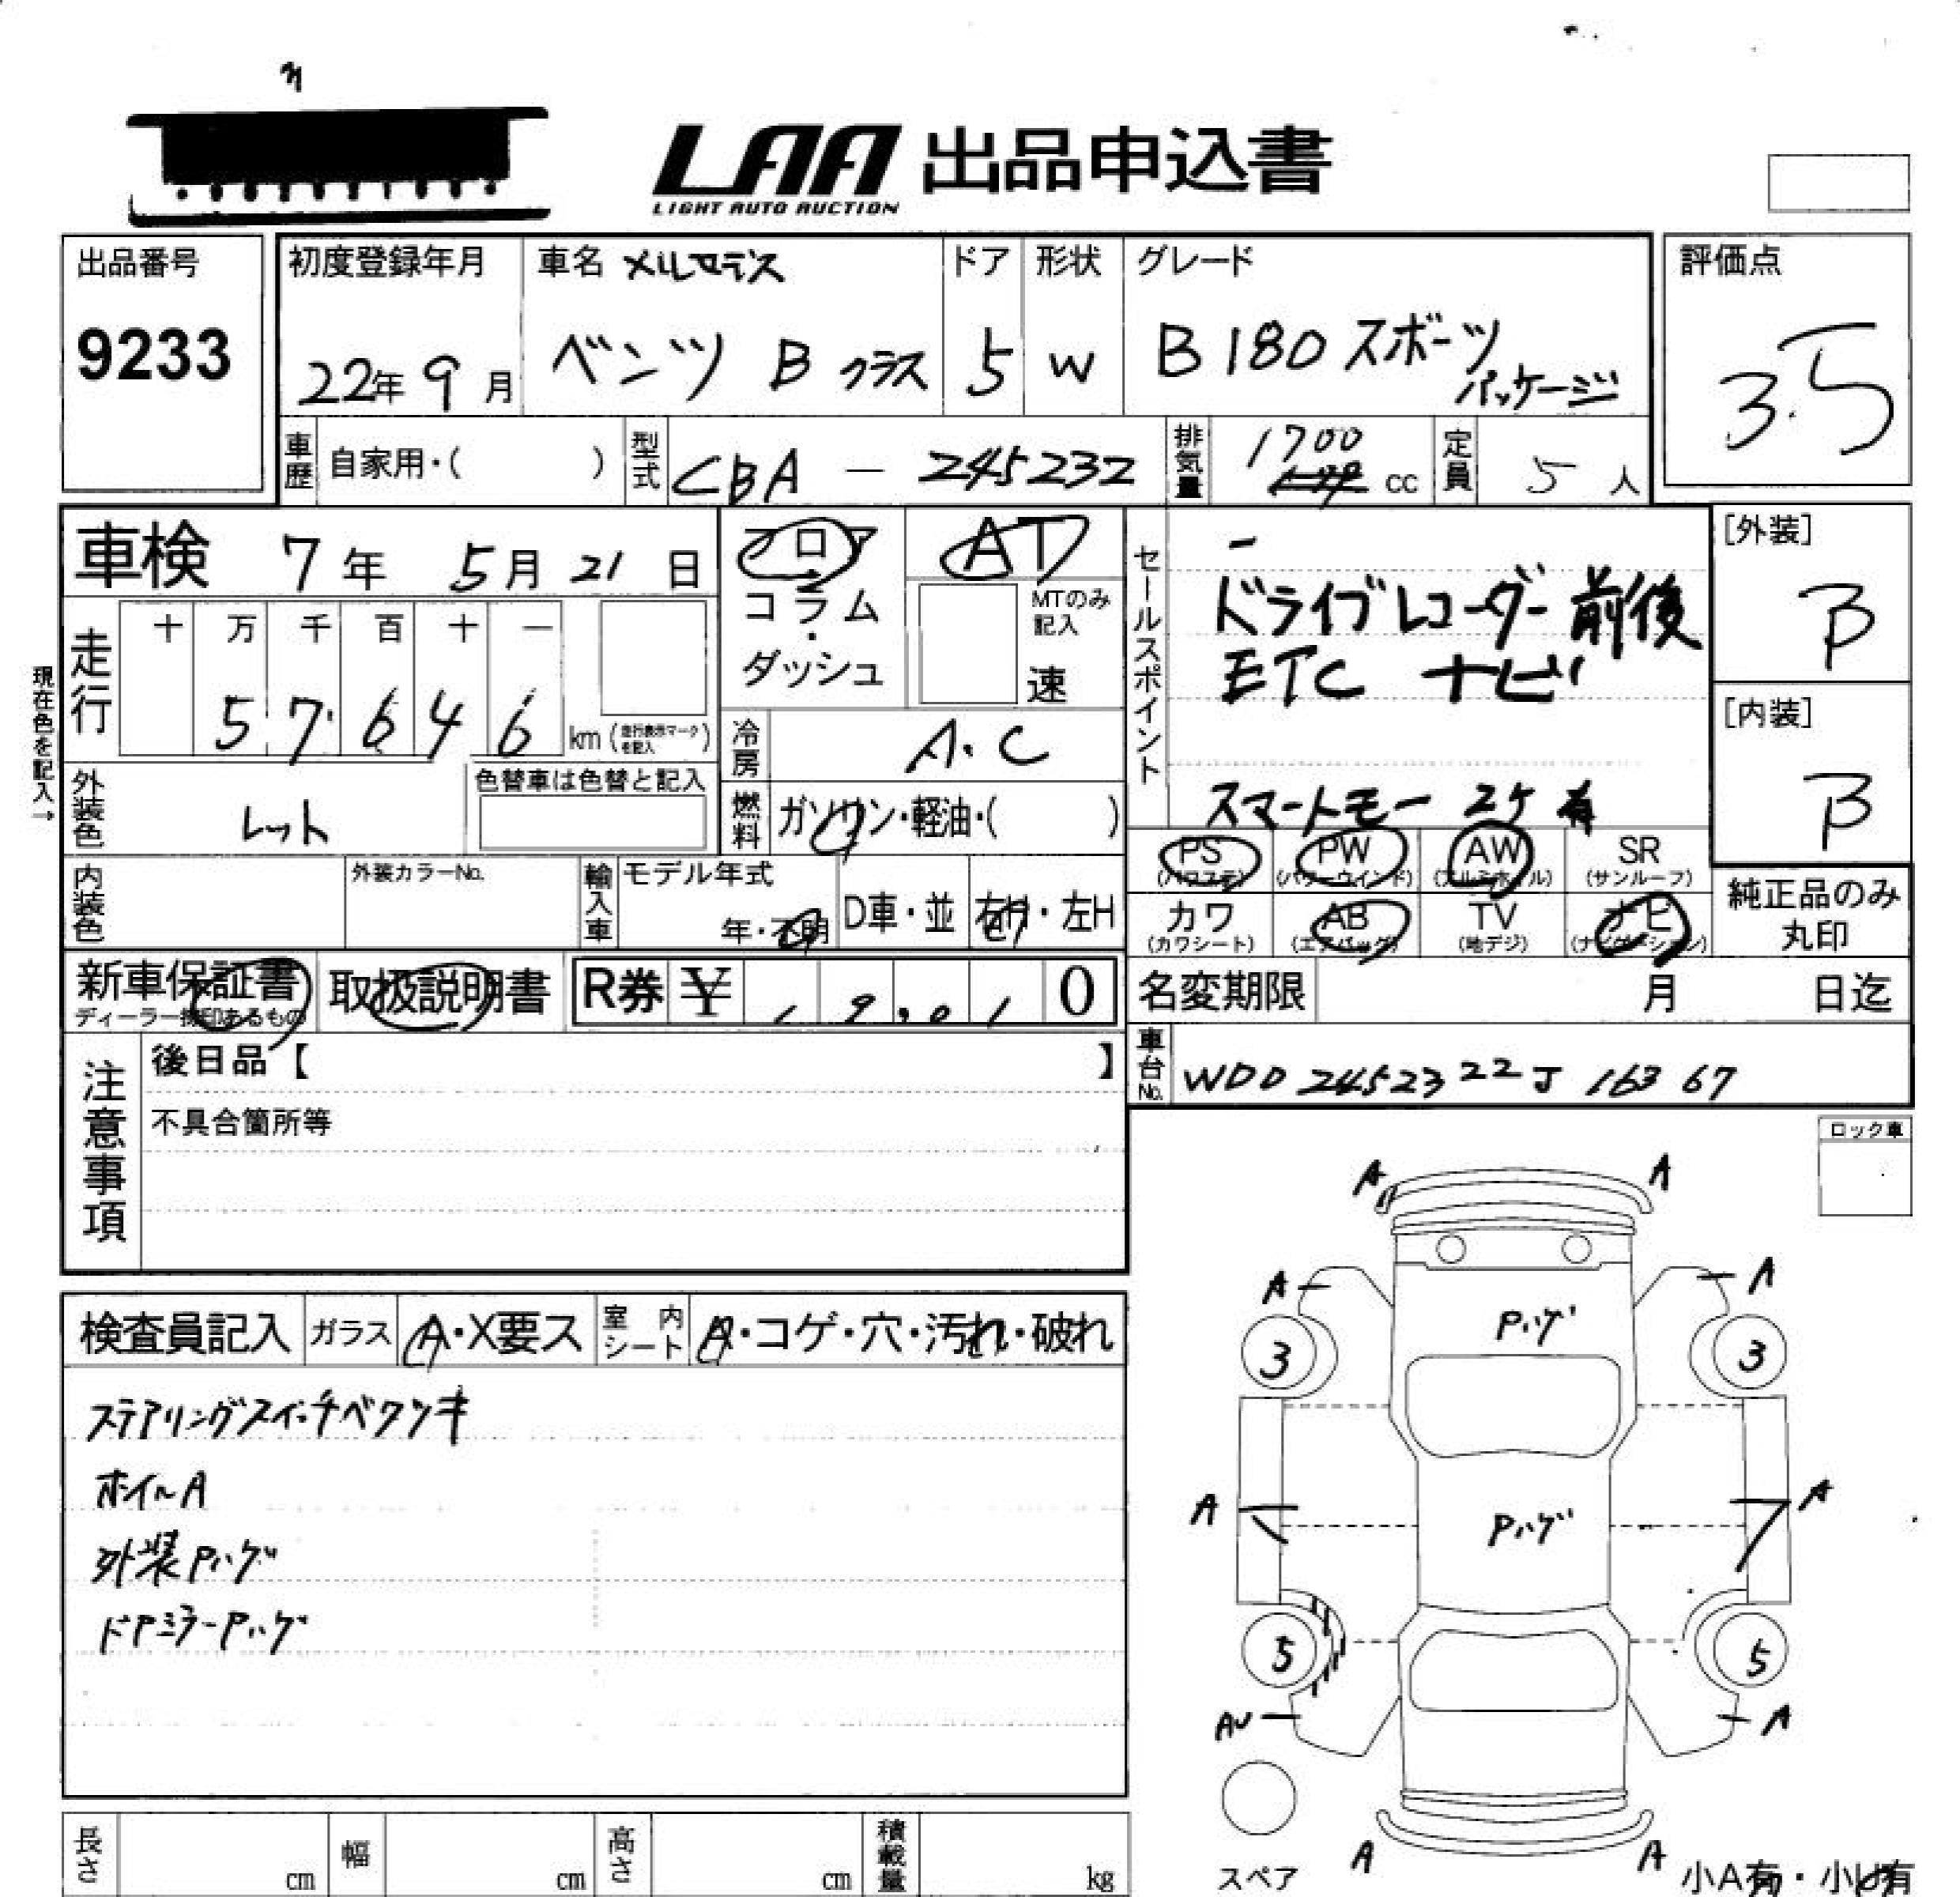 LAA 出品申込書
LIGHT AUTO AUCTION
出品番号
9233
初度登録年月
22年 9月
車名 メルセデス
ベンツ B クラス
ドア
5
形状
W
グレード
B180 スポーツ
パッケージ
評価点
3.5
車歴 自家用・( )
型式 CBA — 245232
排気量 1700 cc
定員 5 人
車検 7年 5月 21日
現在色を記入→
走行
十 万 千 百 十 一
5 7 6 4 6 km (走行表示マークを記入)
フロア
コラム
・
ダッシュ
AT
MTのみ
記入
速
冷房 A・C
燃料 ガソリン・軽油・( )
外装色 レット
色替車は色替と記入
内装色
外装カラーNo.
輸入車
モデル年式
年・不明
D車・並
右H・左H
セールスポイント
ー
ドライブレコーダー 前後
ETC ナビ
スマートキー 2ケ 有
[外装]
B
[内装]
B
PS
(パワステ)
PW
(パワーウインド)
AW
(アルミホイル)
SR
(サンルーフ)
カワ
(カワシート)
AB
(エアバッグ)
TV
(地デジ)
ナビ
(ナビゲーション)
純正品のみ
丸印
新車保証書
ディーラー捺印あるもの
取扱説明書
R券 ¥ 0
名変期限 月 日迄
車台No. WDD 24523 22 J 163 67
注意事項
後日品【 】
不具合箇所等
ロック車
検査員記入
ガラス A・X要ス
室内シート A・コゲ・穴・汚れ・破れ
ステアリングスイッチベタツキ
ホイルA
外装Pハゲ
ドアミラーPハゲ
A A
A A
Pハゲ
3 3
A A
Pハゲ
5 5
AU A
スペア
A A
小A有・小U有
長さ cm
幅 cm
高さ cm
積載量 kg